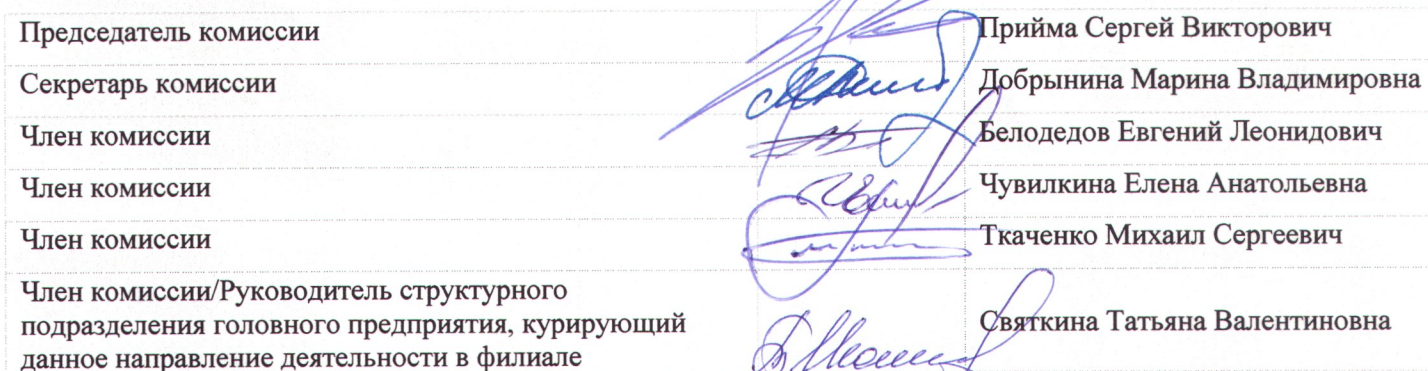 Председатель комиссии Прийма Сергей Викторович
Секретарь комиссии Добрынина Марина Владимировна
Член комиссии Белодедов Евгений Леонидович
Член комиссии Чувилкина Елена Анатольевна
Член комиссии Ткаченко Михаил Сергеевич
Член комиссии/Руководитель структурного
подразделения головного предприятия, курирующий Святкина Татьяна Валентиновна
данное направление деятельности в филиале